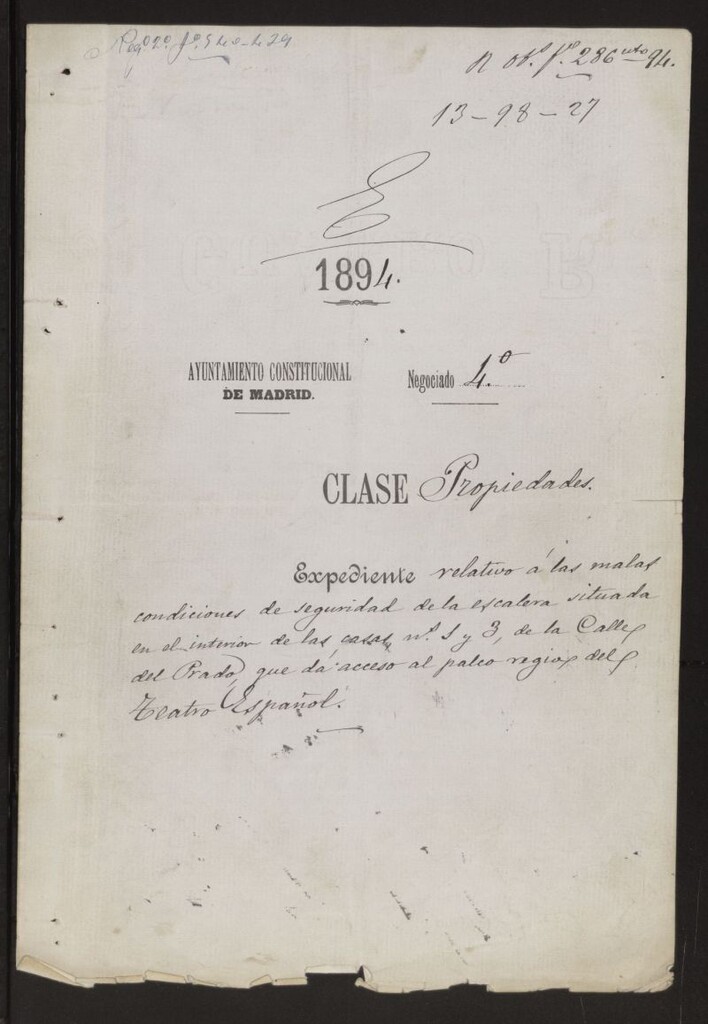 Reg.º 2.º f.º
R Ob.s f.º 286 94.
13-98-27
E
1894.
AYUNTAMIENTO CONSTITUCIONAL
DE MADRID.
Negociado 4.º
CLASE Propiedades.
Expediente relativo á las malas
condiciones de seguridad de la escalera situada
en el interior de las casas nº. 1 y 3, de la Calle
del Prado, que dá acceso al palco regio del
Teatro Español.